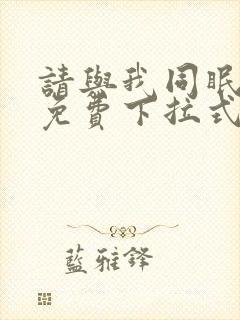 請與我同眠
免費下拉式
藍雅鋒